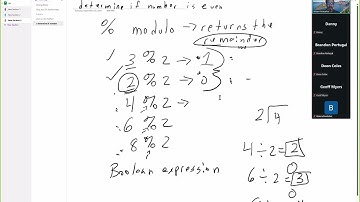 determine if number is even
% modulo → returns the
remainder
3 % 2 → 1
2 % 2 → 0
4 % 2 →
6 % 2
8 % 2
Boolean expression
2 4
4 ÷ 2 = 2
0
6 ÷ 2 = 3
0
Danny
Brandon Portugal
Deon Coles
Geoff Myers
B